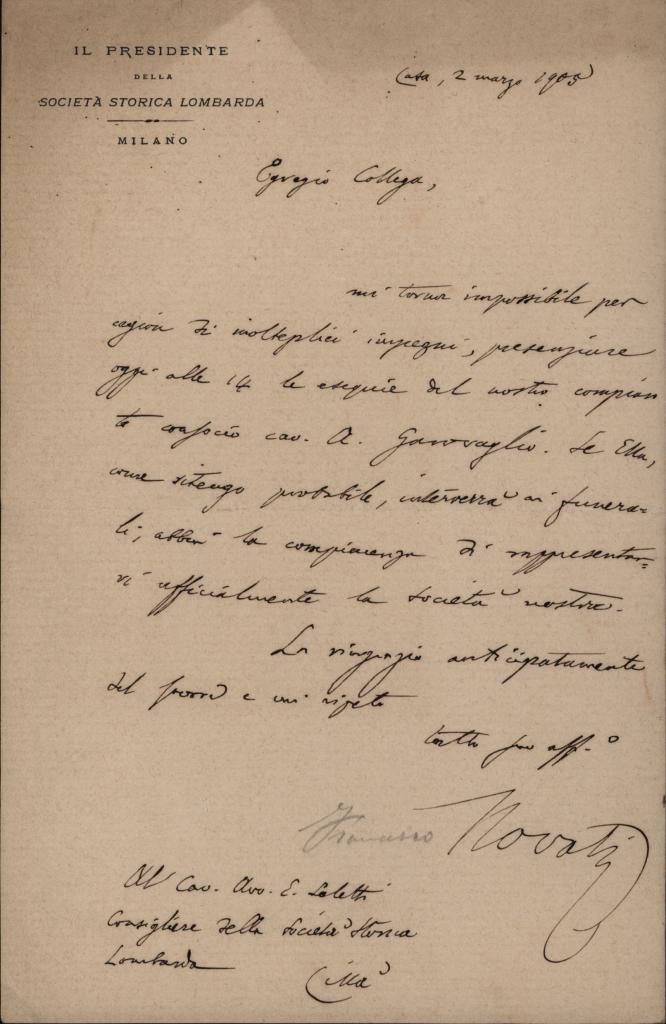 IL PRESIDENTE
DELLA
SOCIETÀ STORICA LOMBARDA
MILANO
Casa, 2 marzo 1905
Egregio Collega,
mi torna impossibile per
cagion di molteplici impegni, presenziare
oggi alle 14 le esequie del nostro compian
to consocio cav. A. Garovaglio. Se Ella,
come ritengo probabile, interverrà ai funera-
li, abbia la compiacenza di rappresentar-
vi ufficialmente la Società nostra.
La ringrazio anticipatamente
del favore e mi ripeto
tutto suo aff.o
Francesco Novati
Al Cav. Avv. E. Seletti
Consigliere della Società Storica
Lombarda
Città